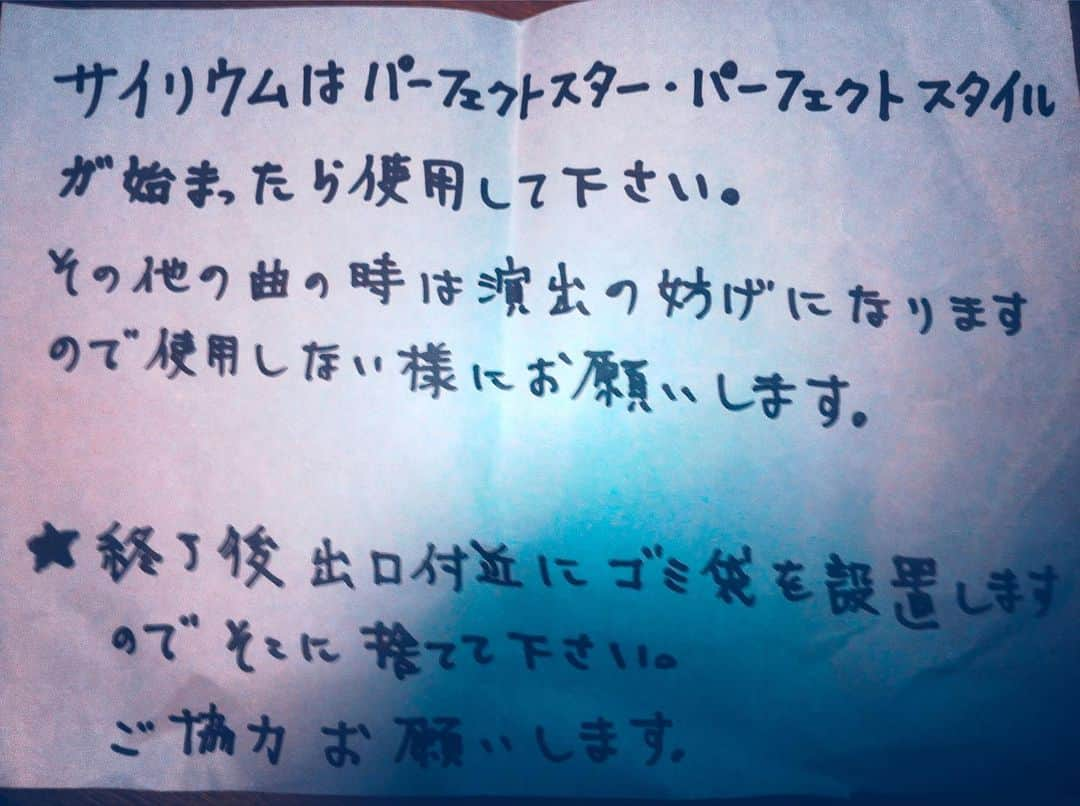 サイリウムはパーフェクトスター・パーフェクトスタイル
が始まったら使用して下さい。
その他の曲の時は演出の妨げになります
ので使用しない様にお願いします。
★終了後 出口付近にゴミ袋を設置します
のでそこに捨てて下さい。
ご協力お願いします。